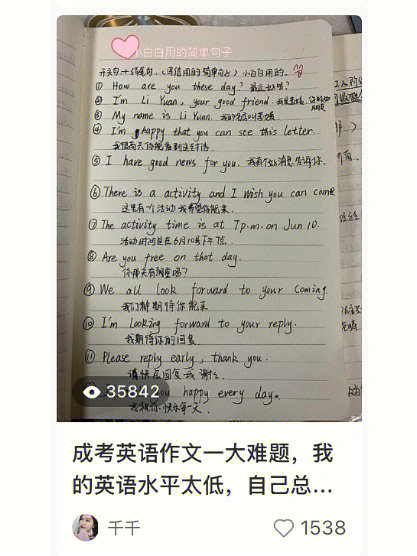 小白白用的简单句子
① How are you these day? 最近如何?
② I'm Li Yuan, your good friend. 我是李媛,你的好朋友
③ My name is Li Yuan. 我的名字叫李媛
④ I'm happy that you can see this letter.
⑤ I have good news for you. 我有个好消息告诉你.
⑥ There is a activity and I wish you can come
这里有一个活动我希望你能来.
⑦ The activity time is at 7p.m. on Jun 10.
活动时间是在6月10号下午7点.
⑧ Are you free on that day.
你那天有时间吗?
⑨ We all look forward to your coming.
我们都期待你能来
⑩ I'm looking forward to your reply.
我期待你的回复
⑪ Please reply early, thank you.
请快点回复我 谢谢
you happy every day.
我祝你快乐每一天
35842
成考英语作文一大难题,我
的英语水平太低,自己总...
千千
1538